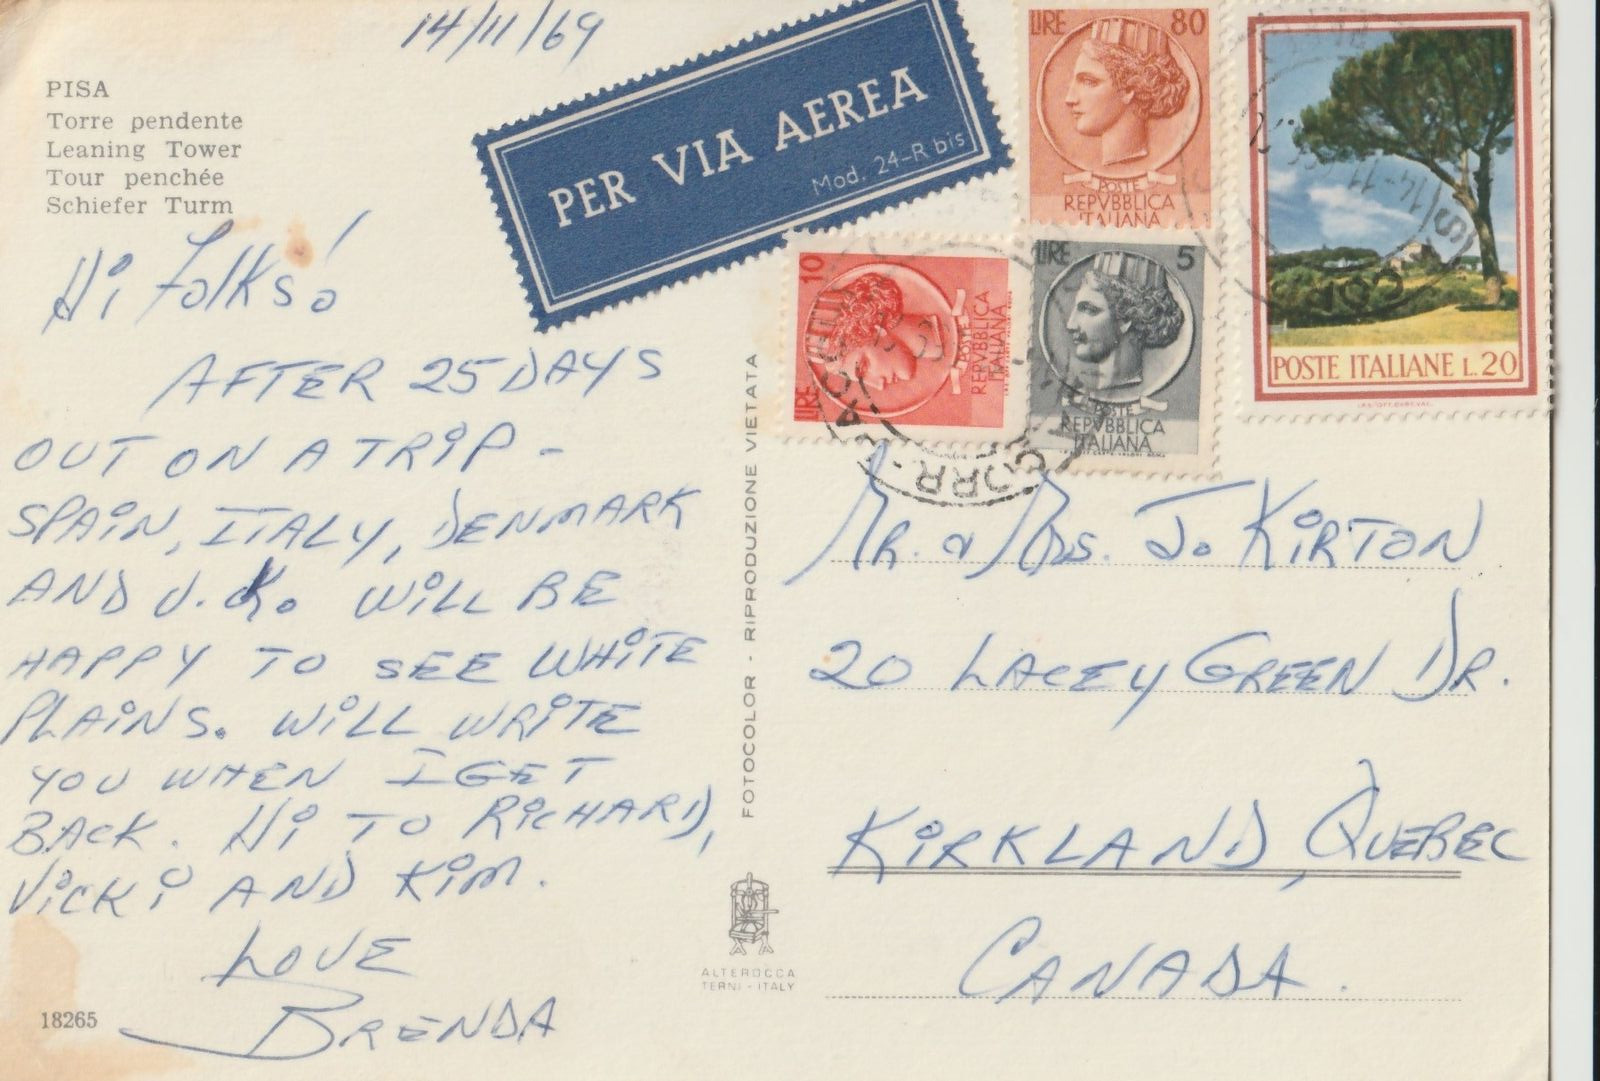 14/11/69
PISA
Torre pendente
Leaning Tower
Tour penchée
Schiefer Turm
PER VIA AEREA
Mod. 24-R bis
LIRE 80
POSTE
REPVBBLICA
ITALIANA
LIRE 10
POSTE
REPVBBLICA
ITALIANA
LIRE 5
POSTE
REPVBBLICA
ITALIANA
POSTE ITALIANE L.20
Hi Folks!
AFTER 25 DAYS
OUT ON A TRIP -
SPAIN, ITALY, DENMARK
AND U.K. WILL BE
HAPPY TO SEE WHITE
PLAINS. WILL WRITE
YOU WHEN I GET
BACK. HI TO RICHARD,
VICKI AND KIM.
LOVE
BRENDA
18265
FOTOCOLOR - RIPRODUZIONE VIETATA
ALTEROCCA
TERNI - ITALY
MR. & MRS. J. KIRTON
20 LACEY GREEN DR.
KIRKLAND, QUEBEC
CANADA.